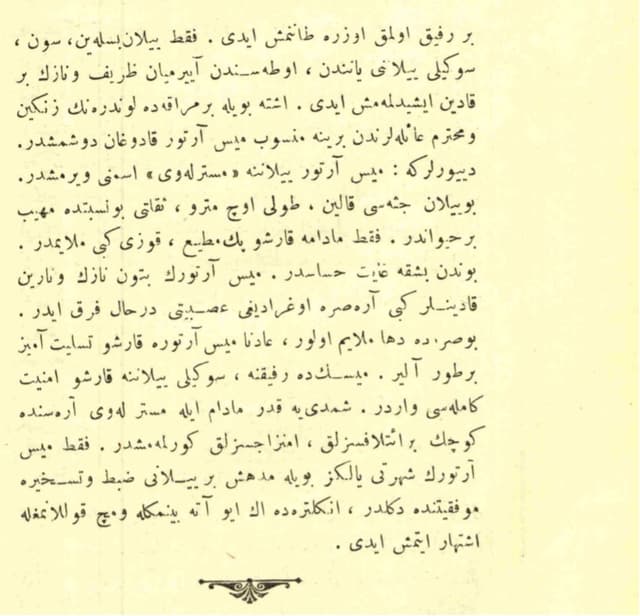 بر رفیق اولمق اوزره طانمش ایدی . فقط ییلان بسله‌ین ، سون ،
سوکیلی ییلانی یانندن ، اوطه‌سندن آییرمیان ظریف ونازك بر
قادین ایشیدلمه‌مش ایدی . اشته بویله بر مراقه‌ده لوندره‌نك زنکین
ومحترم عائله‌لرندن برینه منسوب میس آرتور قادوغان دوشمشدر.
دییورلرکه : میس آرتور ییلاننه «مسترله‌وی» اسمنی ویرمشدر.
بوییلان جثه‌سی قالین . طولی اوچ مترو ، ثقلتی بونسبتده مهیب
بر حیواندر . فقط مادامه قارشو پك مطیع ، قوزی کبی ملایمدر .
بوندن بشقه غایت حساسدر . میس آرتورك بتون نازك ونارین
قادینلر کبی آره‌صره اوغرادیغی عصبیتی درحال فرق ایدر .
بوصره‌ده دها ملایم اولور ، عادتا میس آرتوره قارشو تسلیت آمیز
بر طور آلیر . میسك‌ده رفیقنه ، سوکیلی ییلاننه قارشو امنیت
کامله‌سی واردر . شمدی‌یه قدر مادام ایله مستر له‌وی آره‌سنده
کوچك بر ائتلافسزلق ، امتزاجسزلق کورلمه‌مشدر . فقط میس
آرتورك شهرتی یالکز بویله مدهش بر ییلانی ضبط وتسخیره
موفقیتنده دکلدر ، انکلتره‌ده اك ایو آته بینمکله ومچ قوللانمغله
اشتهار ایتمش ایدی .